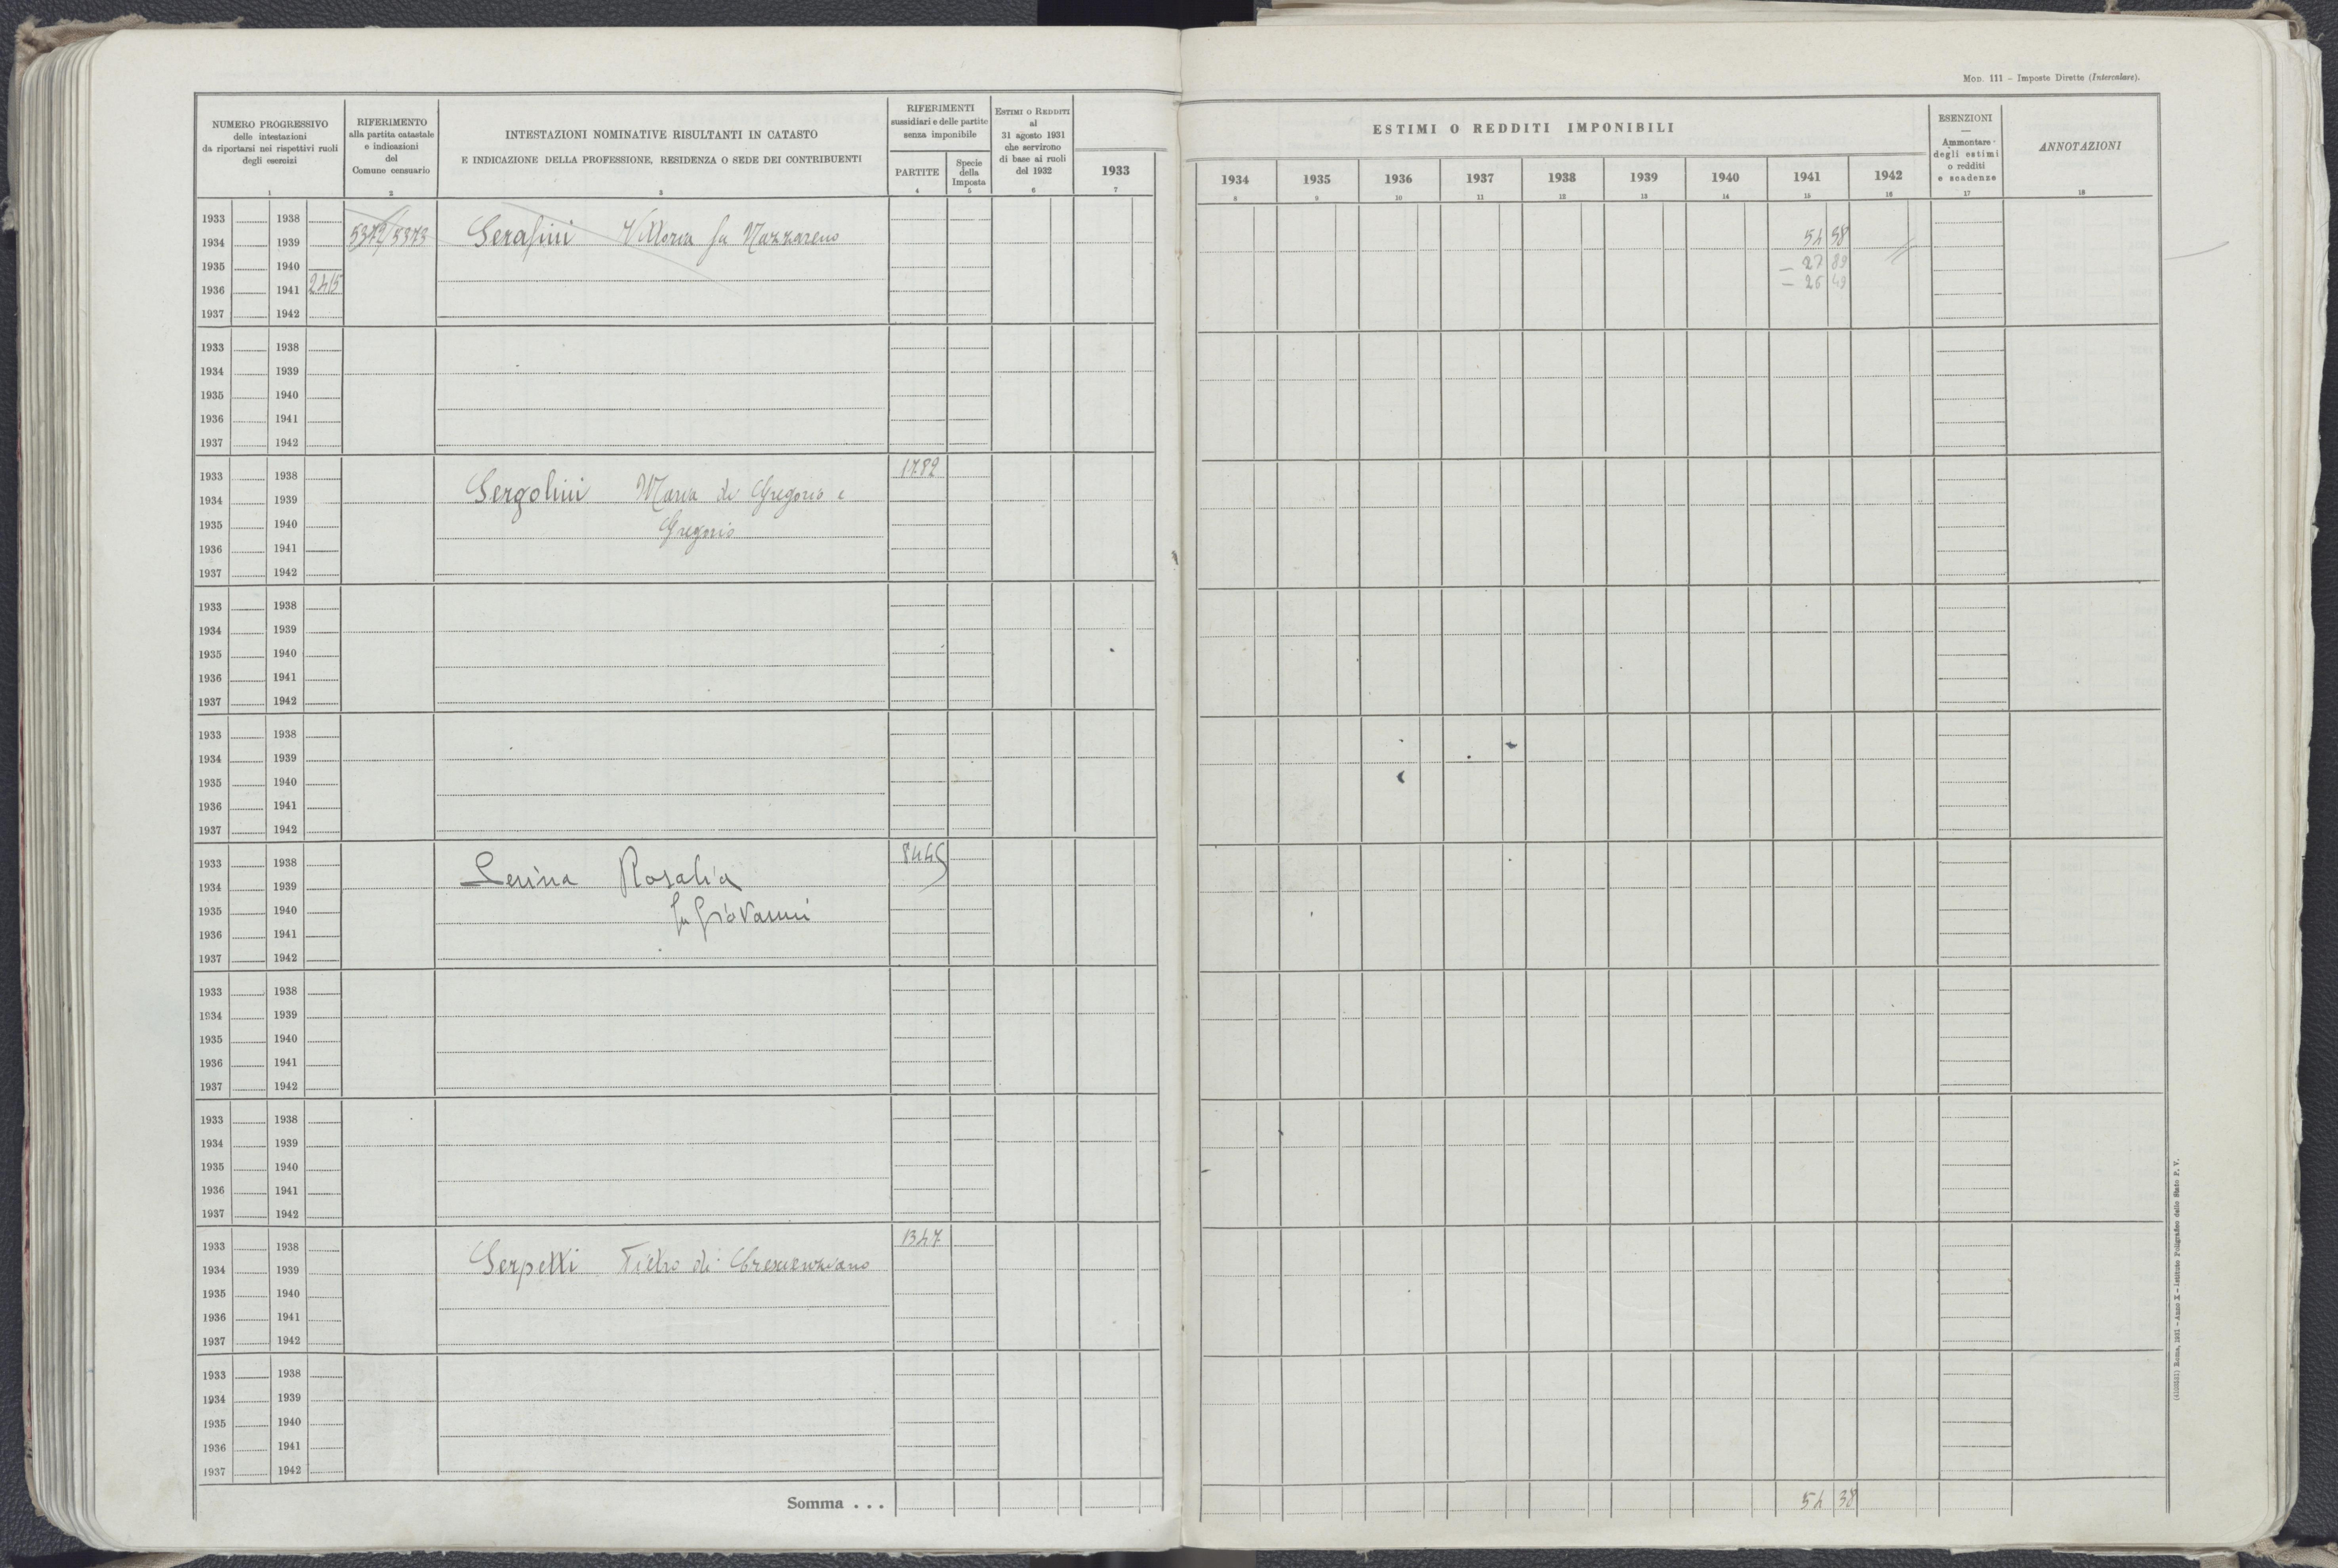 Mod. 111 – Imposte Dirette (Intercalare).
NUMERO PROGRESSIVO
delle intestazioni
da riportarsi nei rispettivi ruoli
degli esercizi
1
RIFERIMENTO
alla partita catastale
e indicazioni
del
Comune censuario
2
INTESTAZIONI NOMINATIVE RISULTANTI IN CATASTO
E INDICAZIONE DELLA PROFESSIONE, RESIDENZA O SEDE DEI CONTRIBUENTI
3
RIFERIMENTI
sussidiari e delle partite
senza imponibile
PARTITE
4
Specie
della
Imposta
5
ESTIMI O REDDITI
al
31 agosto 1931
che servirono
di base ai ruoli
del 1932
6
1933
7
ESTIMI O REDDITI IMPONIBILI
1934 1935 1936 1937 1938 1939 1940 1941 1942
8 9 10 11 12 13 14 15 16
ESENZIONI
—
Ammontare
degli estimi
o redditi
e scadenze
17
ANNOTAZIONI
18
1933 1938
1934 1939 5372/5373 Serafini Vittoria fu Nazzareno 54 38
1935 1940 — 27 89
1936 1941 2415 — 26 49
1937 1942
1933 1938
1934 1939
1935 1940
1936 1941
1937 1942
1933 1938 1782
1934 1939 Sergolini Maria di Gregorio e
1935 1940 Gregorio
1936 1941
1937 1942
1933 1938
1934 1939
1935 1940
1936 1941
1937 1942
1933 1938
1934 1939
1935 1940
1936 1941
1937 1942
1933 1938 8445
1934 1939 Serina Rosalia
1935 1940 fu Giovanni
1936 1941
1937 1942
1933 1938
1934 1939
1935 1940
1936 1941
1937 1942
1933 1938
1934 1939
1935 1940
1936 1941
1937 1942
1933 1938 1347
1934 1939 Serpetti Pietro di Crescenziano
1935 1940
1936 1941
1937 1942
1933 1938
1934 1939
1935 1940
1936 1941
1937 1942
Somma . . . 54 38
(4103551) Roma, 1931 – Anno X – Istituto Poligrafico dello Stato P. V.